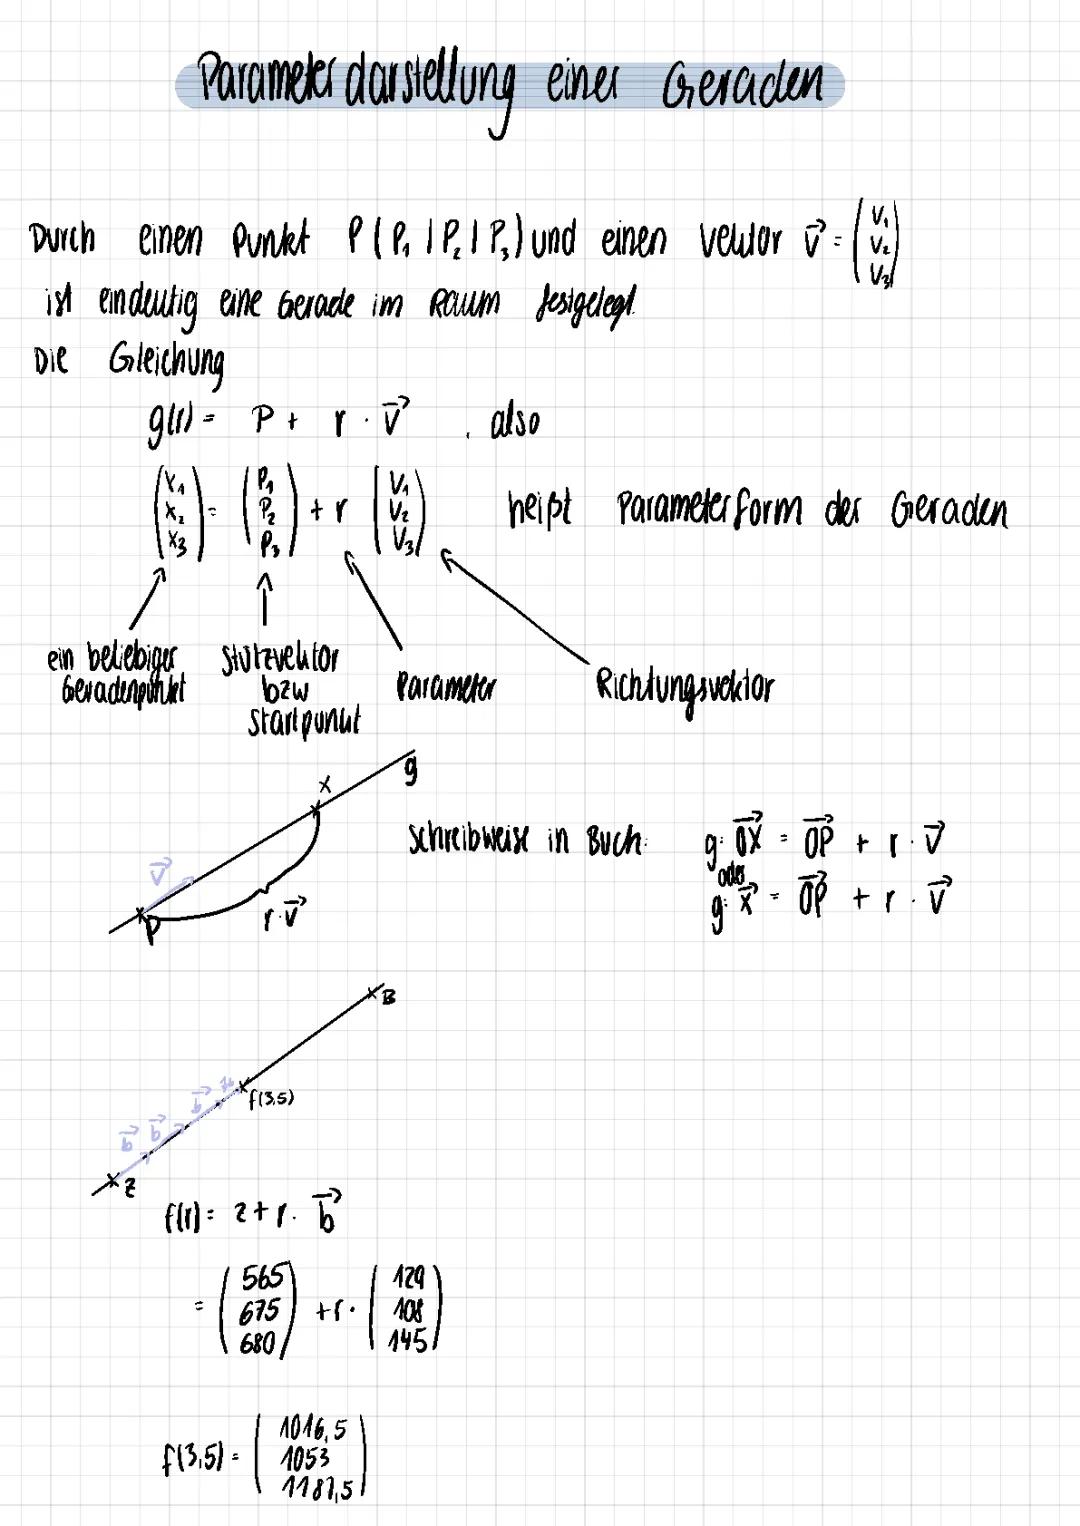 Parameterdarstellung einer Geraden
Durch einen Punkt P(P₁|P₂|P₃) und einen Vektor v⃗ = (v₁ v₂ v₃)
ist eindeutig eine Gerade im Raum festgelegt.
Die Gleichung
g(r) = P + r · v⃗ , also
(x₁ x₂ x₃) = (P₁ P₂ P₃) + r (v₁ v₂ v₃) heißt Parameterform der Geraden
ein beliebiger Geradenpunkt
Stützvektor bzw Startpunkt
Parameter
Richtungsvektor
g
X
v⃗
P
r·v⃗
Schreibweise in Buch: g: 0X⃗ = 0P⃗ + r · v⃗
oder
g: x⃗ = 0P⃗ + r · v⃗
B
b⃗ b⃗ b⃗
f(3,5)
z
f(r) = z + r · b⃗
= (565 675 680) + r · (129 108 145)
f(3,5) = (1016,5 1053 1187,5)